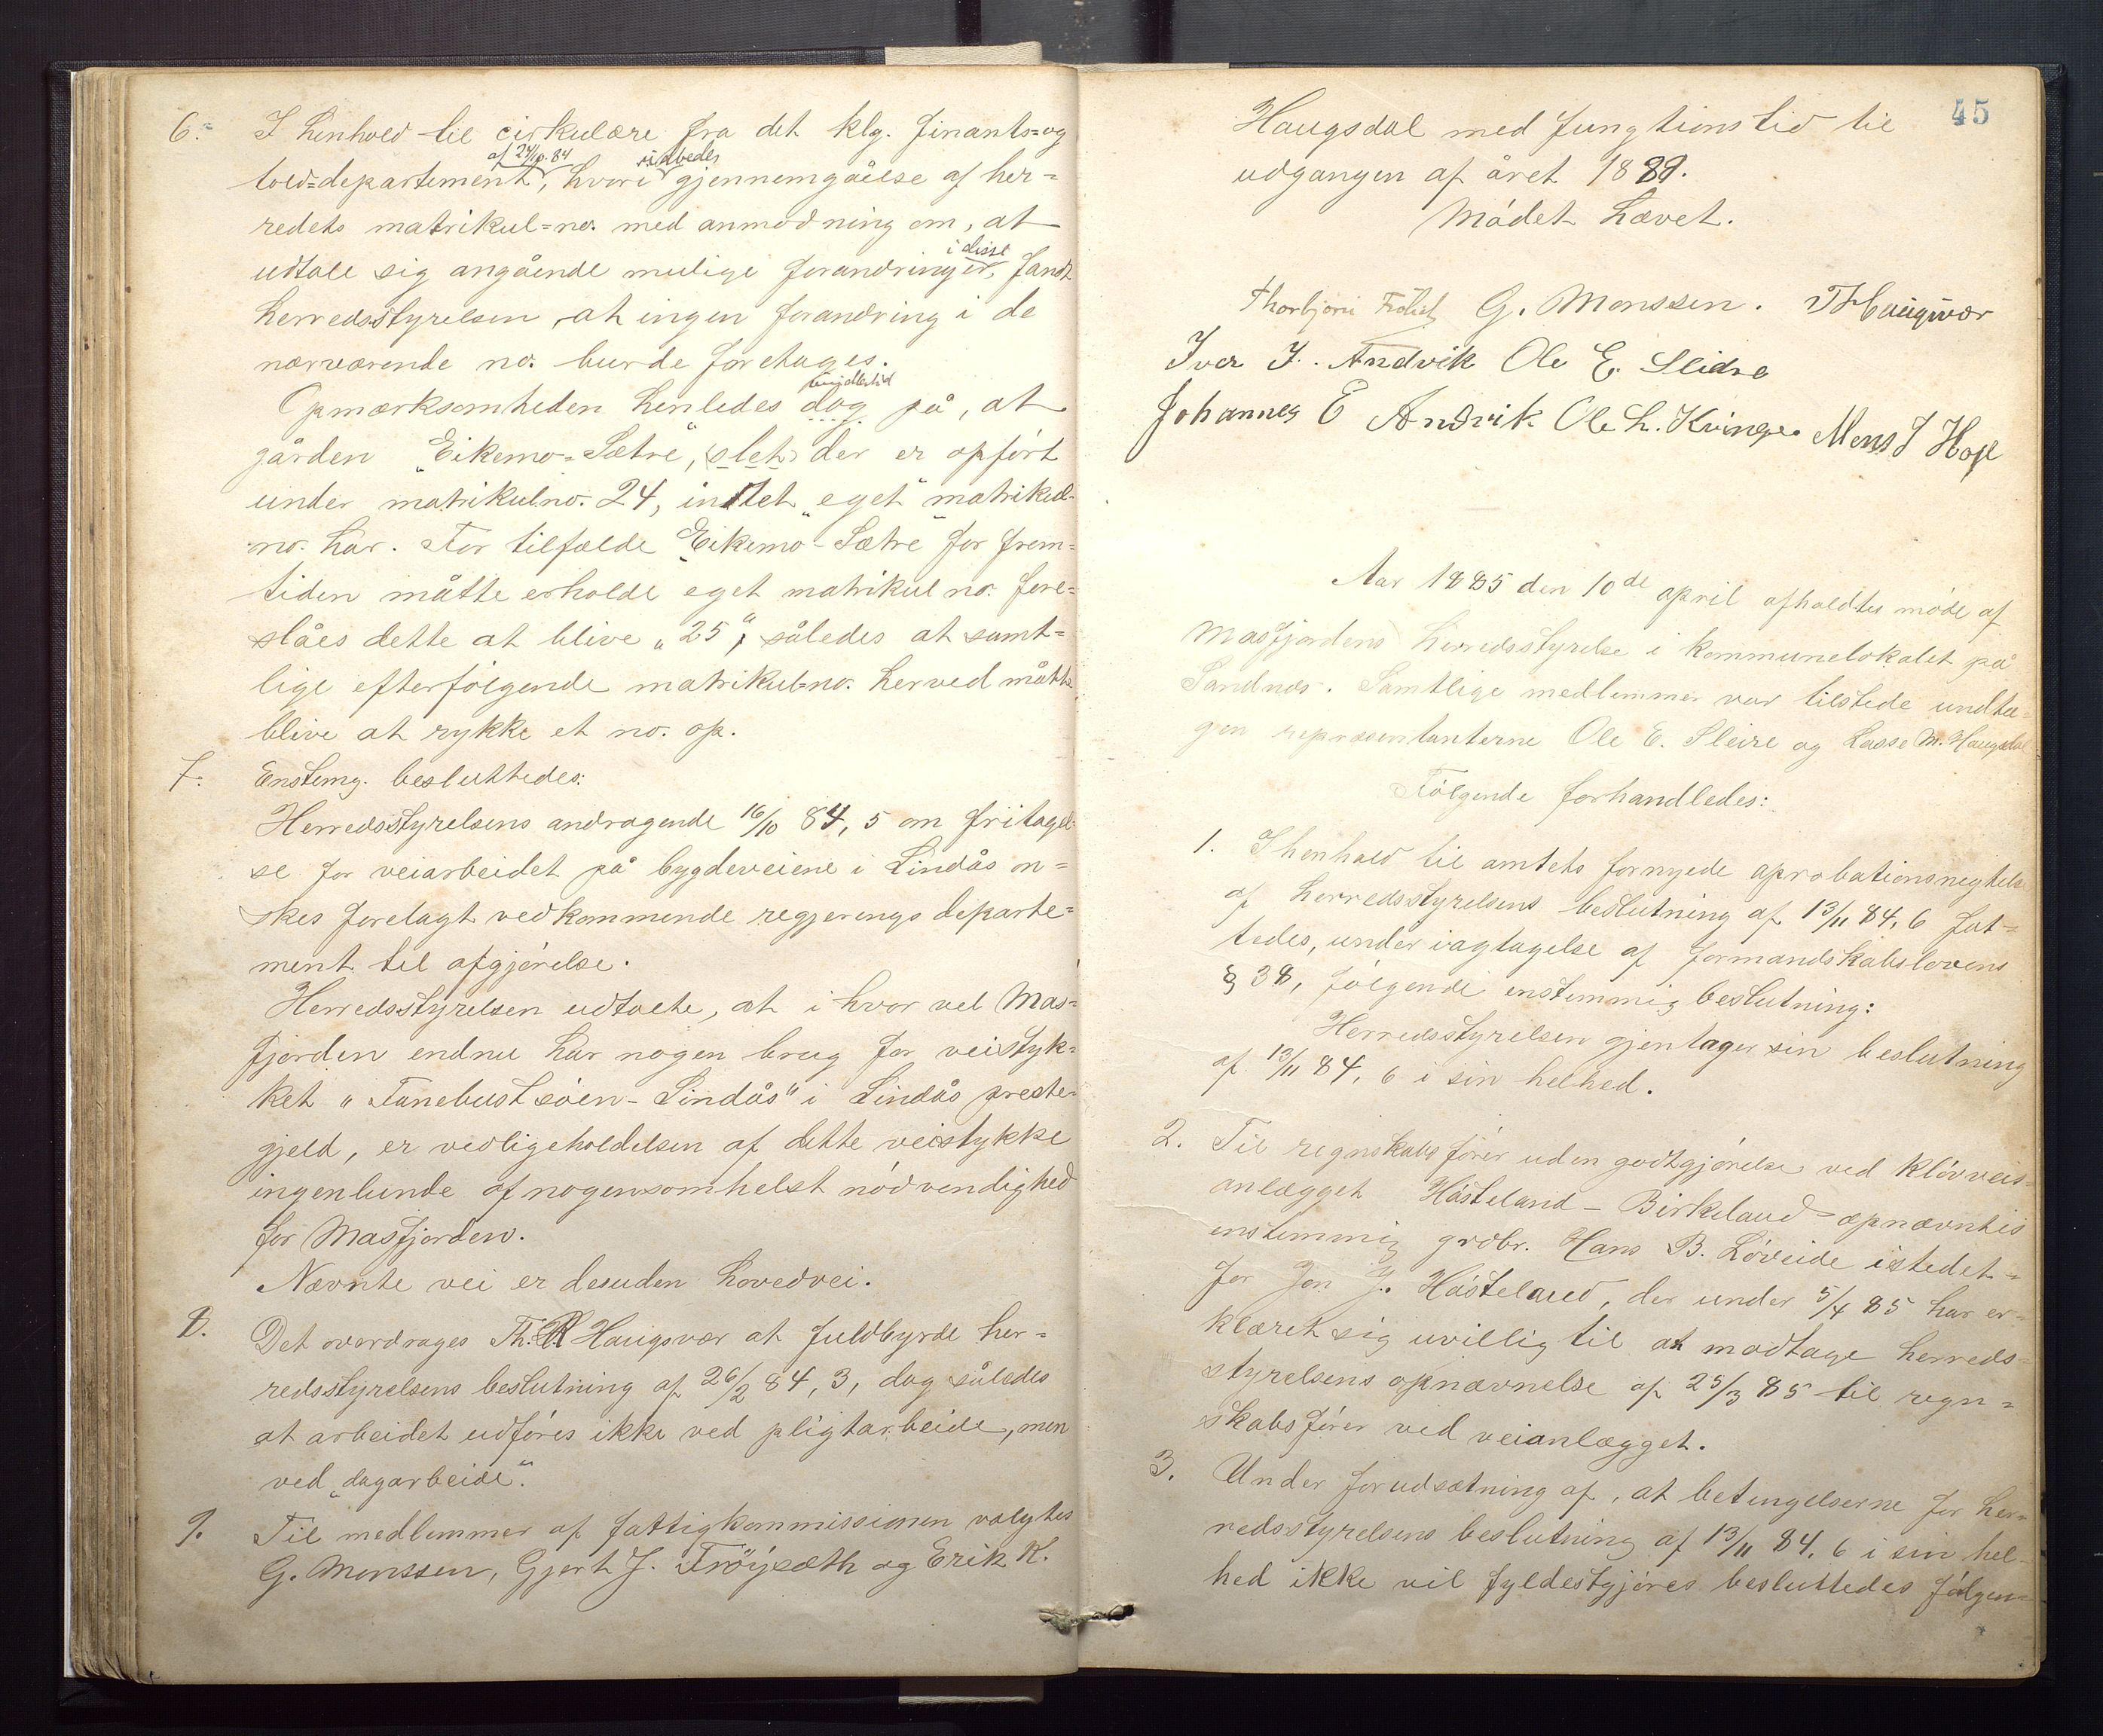 6. I henhold til cirkulære fra det klg. finants= og
told=departement, af 24/10. 84 hvori udbedes gjennemgåelse af her=
redets matrikul=no. med anmodning om, at
udtale sig angående mulige forandringer i disse, fandt
herredsstyrelsen at ingen forandring i de
nærværende no. burde foretages.
Opmærksomheden henledes dog imidlertid på, at
gården "Eikemo=Sætre", (slet) der er opført
under matrikulno. 24, intet "eget" matrikul-
no. har. For tilfælde "Eikemo-Sætre" for frem=
tiden måtte erholde eget matrikul no. fore=
slåes dette at blive "25", således at samt=
lige efterfølgende matrikulno. herved måtte
blive at rykke et no. op.
7. Enstemg. besluttedes:
Herredsstyrelsens andragende 16/10 84, 5 om fritagel=
se for veiarbeidet på bygdeveiene i Lindås øn=
skes forelagt vedkommende regjerings departe=
ment til afgjørelse.
Herredsstyrelsen udtalte, at i hvor vel Mas=
fjorden endnu har nogen brug for veistyk=
ket "Fanebust søen-Lindås" i Lindås præste=
gjeld, er vedligeholdelsen af dette veistykke
ingenlunde af nogensomhelst nødvendighed
for Masfjorden.
Nævnte vei er desuden hovedvei.
8. Det overdrages Th. R Haugsvær at fuldbyrde her=
redsstyrelsens beslutning af 26/2 84, 3, dog således
at arbeidet udføres ikke ved pligtarbeide, men
ved "dagarbeide".
9. Til medlemmer af fattigkommissionen valgtes
G. Monssen, Gjert J. Frøysæth og Erik K.
45
Haugsdal med fungtionstid til
udgangen af året 1889.
Mødet hævet.
Thorbjørn G. Monssen. TRHaugsvær
Iver I. Andvik Ole E. Sleire
Johannes E Andvik Ole L. Kvinge Mons J Hope
Aar 1885 den 10de april afholdtes møde af
Masfjordens herredsstyrelse i kommunelokalet på
Sandnæs. Samtlige medlemmer var tilstede undta=
gen repræsentanterne Ole E. Sleire og Lasse M. Haugsdal
Følgende forhandledes:
1. I henhold til amtets fornyede aprobationsnegtelse
af herredsstyrelsens beslutning af 13/11 84, 6 fat=
tedes, under iagtagelse af formandskabslovens
§ 38, følgende enstemmig beslutning:
Herredsstyrelsen gjentager sin beslutning
af 13/11 84, 6 i sin helhed.
2. Til regnskabsfører uden godtgjørelse ved kløvveis=
anlægget Håsteland - Birkeland opnævntes
enstemmig grdbr. Hans B. Løveide istedet=
for Jon J. Håsteland, der under 5/4 85 har er=
klæret sig uvillig til at modtage herreds=
styrelsens opnævnelse af 25/3 85 til regn=
skabsfører ved veianlægget.
3. Under forudsætning af, at betingelserne for her=
redsstyrelsens beslutning af 13/11 84, 6 i sin hel=
hed ikke vil fyldestgjøres besluttedes følgen=